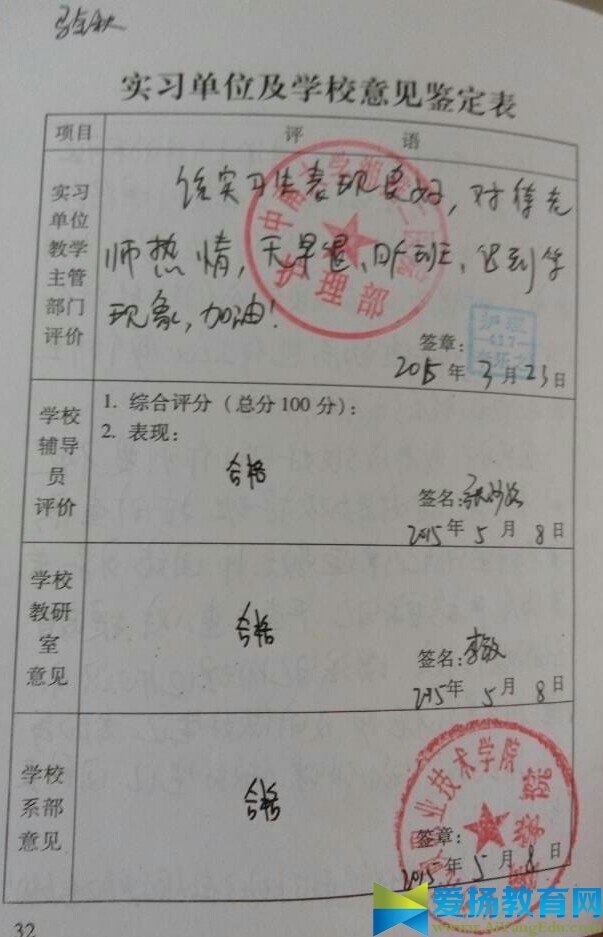 实习单位及学校意见鉴定表
项目 评 语
实习
单位
教学
主管
部门
评价
该实习生表现良好,对待老
师热情,无早退,旷班、迟到等
现象,加油!
护理部
签章:
2015年3月23日
学校
辅导
员
评价
1. 综合评分(总分100分):
2. 表现:
合格
签名:
2015年5月8日
学校
教研
室
意见
合格
签名:李敏
2015年5月8日
学校
系部
意见
合格
业技术学院
签章:
2015年5月8日
32
爱扬教育网
www.AiYangEdu.com